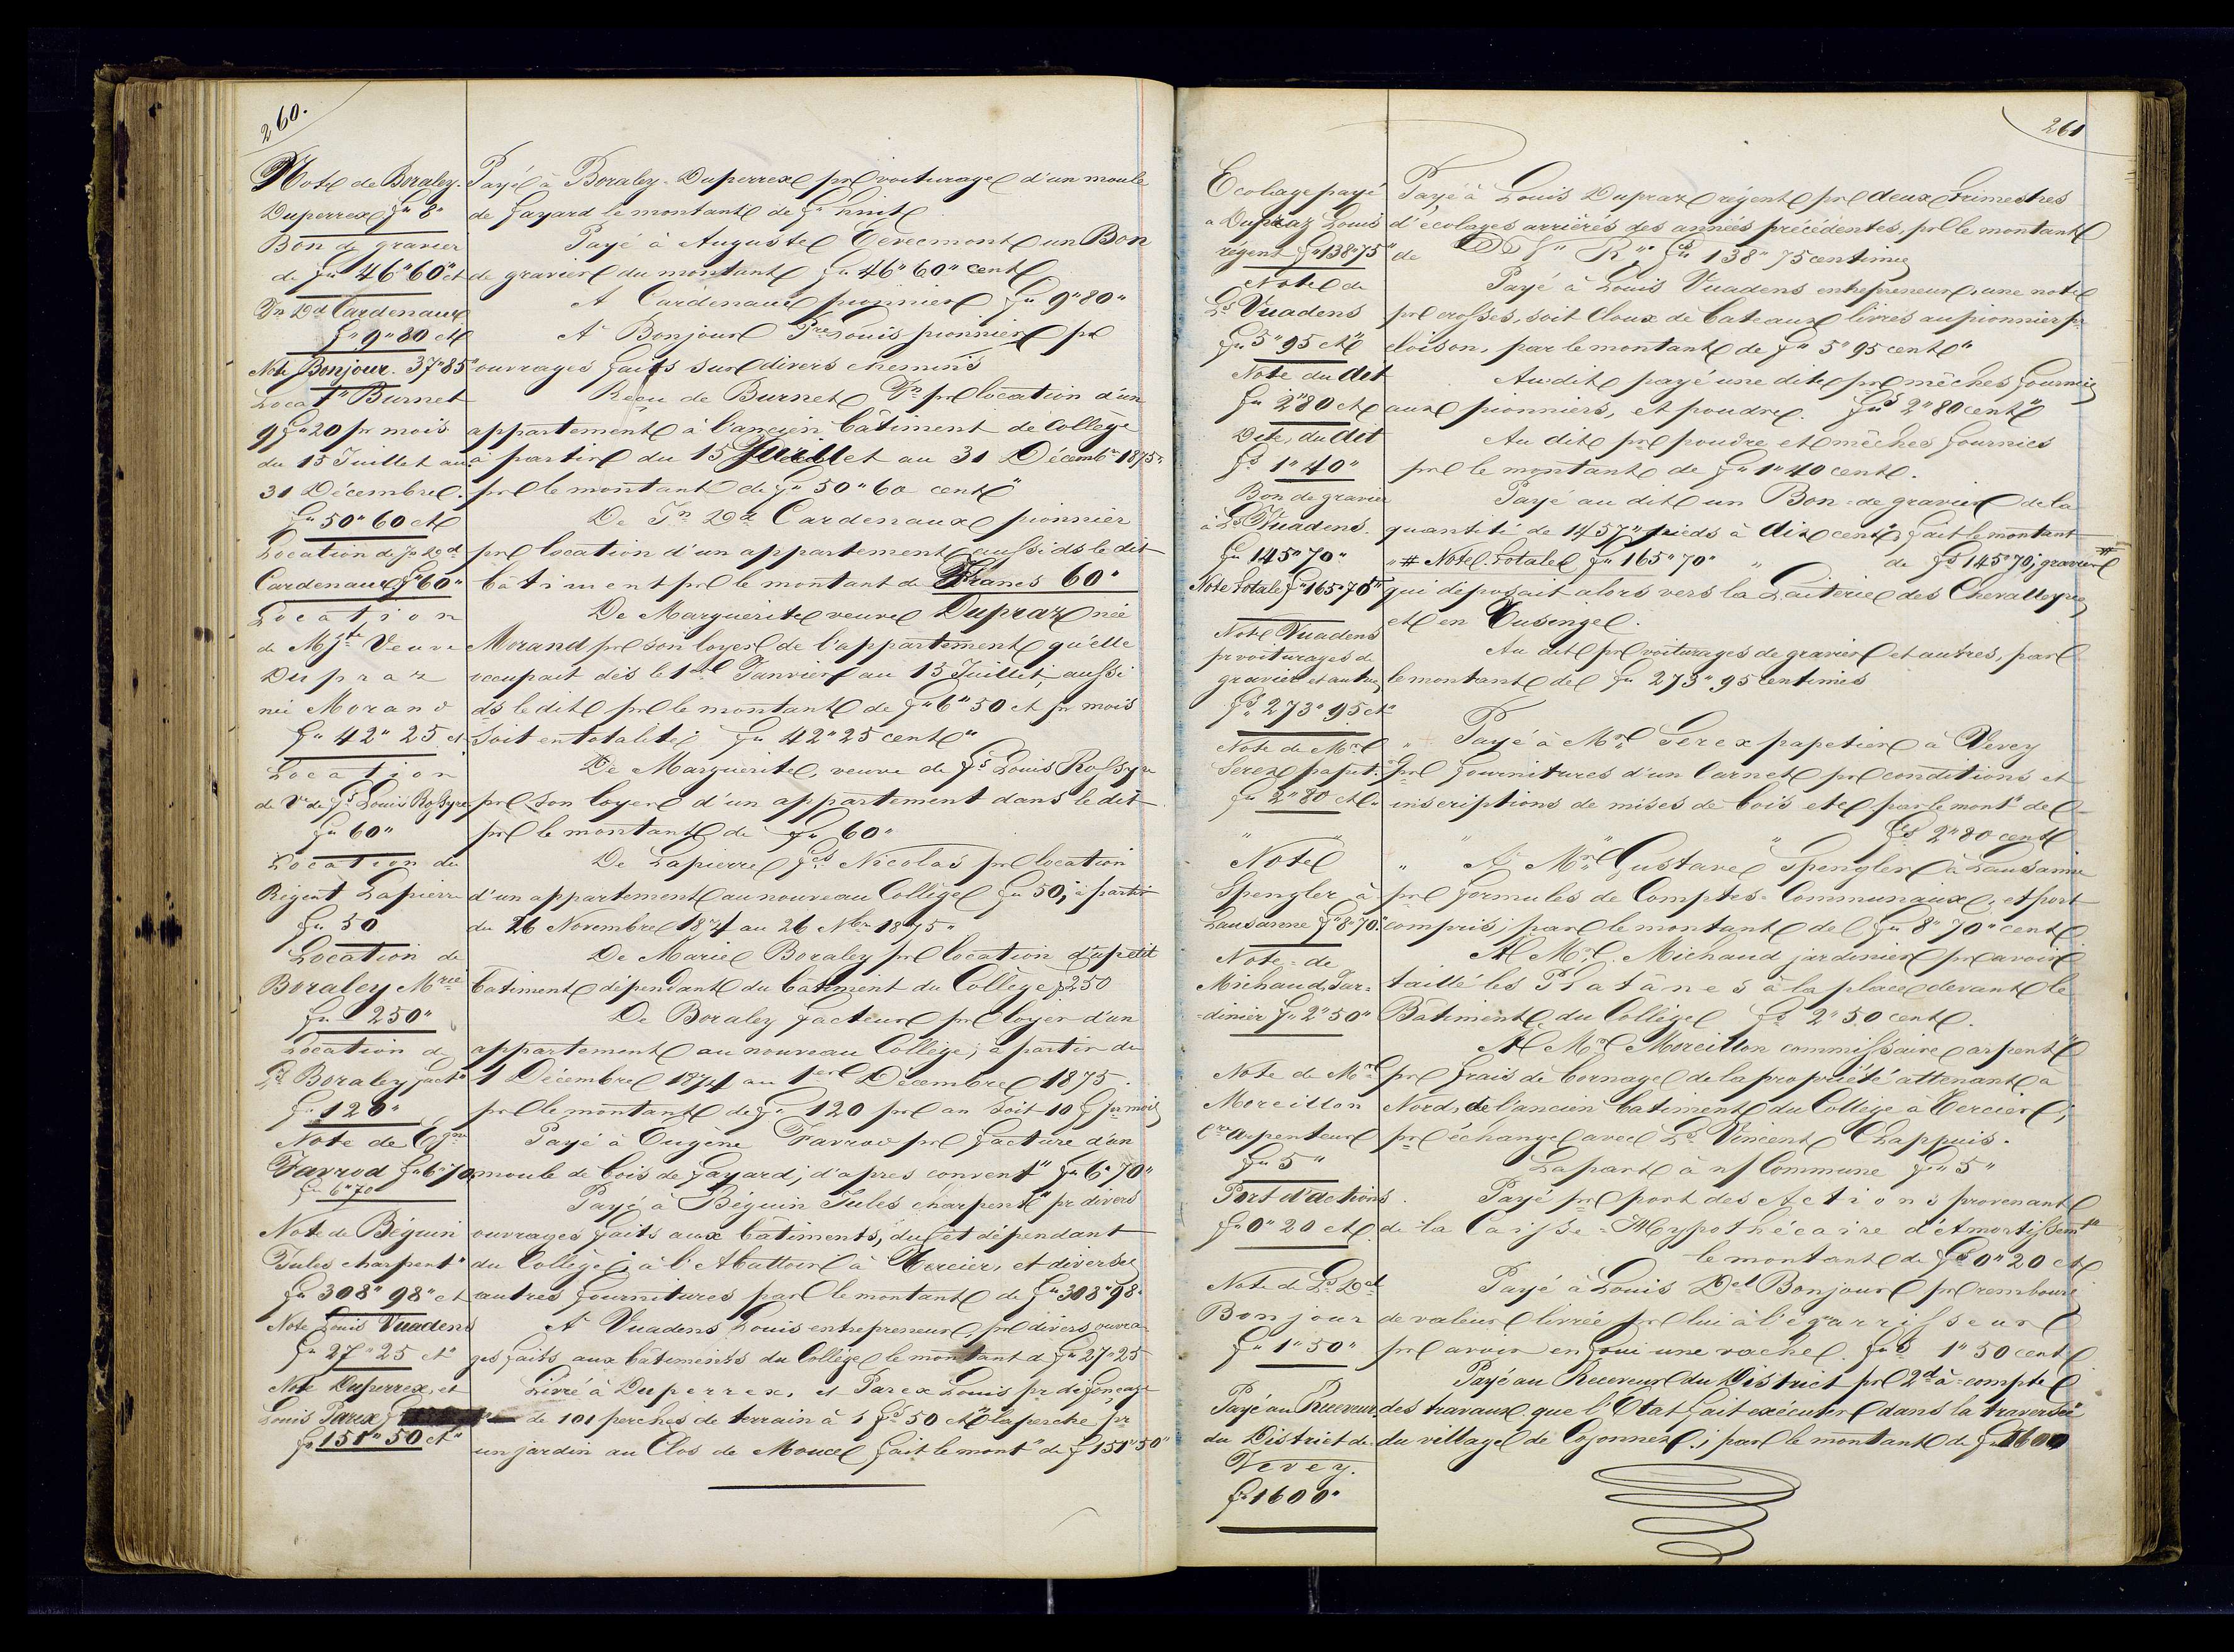 260.
Note de Boraley.
Duperrex fr 8"
Bon de gravier
de fr 46"60" ct
Jn Dd Cardenaux
fr 9"80 ct
Note Bonjour. 37"85"
Locat" Burnet
9 fr 20 pr mois
du 15 Juillet au
31 Décembre.
fr 50"60 ct
Location de Jn Dd
Cardenaux fr 60"
Location
de Mgte Veuve
Dupraz
née Morand
fr 42"25 ct
Location
de Ve de Fs Louis Rossyre
fr 60"
Location du
Régent Lapierre
fr 50
Location de
Boraley Mrie
fr 250"
Location de
Boraley fact"
fr 120"
Note de Egne
Favrod fr 6"70
fr 6"70
Note de Béguin
Jules charpent"
fr 308"98" ct
Note Louis Vuadens
fr 27"25 ct"
Note Duperrex, et
Louis Parex
fr 151"50 ct"
Payé à Boraley-Duperrex pr voiturage d'un moule
de fayard le montant de fr huit
Payé à AugusteEvremont un Bon
de gravier du montant fr 46"60" cent
A Cardenaux pionnier fr 9"80"
A Bonjour Pre Louis pionnier pr
ouvrages faits sur divers chemins
Reçu de Burnet Jn pr location d'un
appartement à l'ancien bâtiment de Collège
à partir du 15 Juillet au 31 Décembre 1875"
pr le montant de fr 50"60 cent"
De Jn Dd Cardenaux pionnier
pr location d'un appartement aussi ds le dit
bâtiment pr le montant de Francs 60"
De Marguerite veuve Dupraz née
Morand pr son loyer de l'appartement qu'elle
occupait dès le 1er Janvier au 15 Juillet, aussi
ds le dit pr le montant de fr 6"50 ct pr mois
Soit en totalité fr 42"25 cent"
De Marguerite, veuve de Fs Louis Rossyre
pr son loyer d'un appartement dans le dit
pr le montant de fr 60"
De Lapierre Fçs Nicolas pr location
d'un appartement au nouveau Collège fr 50; à partir
du 26 Novembre 1874 au 26 Nbre 1875"
De Marie Boraley pr location d'u petit
bâtiment dépendant du bâtiment du Collège fr 250
De Boraley facteur pr loyer d'un
appartement au nouveau Collège; à partir du
1 Décembre 1874 au 1er Décembre 1875.
pr le montant de fr 120 pr an soit 10 f pr mois
Payé à Eugène Favrod pr facture d'un
moule de bois de fayard; d'après convent" fr 6"70"
Payé à Béguin Jules charpent" pr divers
ouvrages faits aux bâtiments, du et dépendant
du Collège; à l'Abattoir à Cercier, et diverses
autres fournitures par le montant de fr 308"98"
A Vuadens Louis entrepreneur, pr divers ouvra-
ges faits aux bâtiments du Collège le montant d fr 27"25
Livré à Duperrex, et Parex Louis pr défonçage
de 101 perches de terrain à 1 fr 50 ct la perche pr
un jardin au Clos de Moucel fait le mont" de f 151"50"
261
Ecolage payé
à Dupraz Louis
régent fr 138"75"
Note de
Ls Vuadens
fr 5"95 ct
Note du dit
fr 2"80 ct
Dite, du dit
fs 1"40"
Bon de gravier
à Ls Vuadens.
fr 145"70"
Note totale fr 165"70"
Note Vuadens
pr voiturages de
gravier et autres
fs 273"95 ct"
Note de Mr
Serex papet.
fr 2"80 ct
Note
Spengler à
Lausanne fr 8"70"
Note = de
Michaud Jar=
=dinier fr 2"50"
Note de Mr
Moreillon
Cre arpenteur
fr 5"
Port d'actions
fr 0"20 ct
Note de Ls Dd
Bonjour
fr 1"50"
Payé au Receveur
du District de
Vevey.
fr 1600"
Payé à Louis Dupraz régent pr deux trimestres
d'écolages arriérés des années précédentes, pr le montant
de fr 138"75 centimes
Payé à Louis Vuadens entrepreneur, une note
pr crosses, soit cloux de bateaux livrés au pionnier pr
cloison, par le montant de fr 5"95 cent"
Au dit payé une dite pr mêches fournies
aux pionniers, et poudre. frs 2"80 cent"
Au dit pr poudre et mêches fournies
pr le montant de fr 1"40 cent.
Payé au dit un Bon = de gravier de la
quantité de 1457" pieds à dix cent, fait le montant
"# Note totale fr 165"70" de fs 145"70; gravier #
qui déposait alors vers la Laiterie des Chevalleyres
et en Cusinge.
Au dit pr voiturages de gravier et autres, par
le montant de fr 273"95 centimes
" Payé à Mr Serex papetier à Vevey
pr fournitures d'un Carnet pr conditions et
inscriptions de mises de bois etc par le mont" de
frs 2"80 cent
" A Mr Gustave Spengler à Lausanne
pr formules de Comptes = Communaux, et port
compris; par le montant de fr 8"70" cent
A Mr. Michaud jardinier pr avoir
taillé les Platânes à la place devant le
Bâtiment du Collège fr 2"50 cent.
A Mr Moreillon commissaire arpent"
pr frais de bornage de la propriété attenant à
Nord, de l'ancien bâtiment du Collège à Cercier;
pr échange avec Ls Vincent Chappuis.
La part à n/ Commune fr "5"
Payé pr port des Actions provenant
de la Caisse = Hypothécaire d'Amortissemt"
le montant de frs 0"20 ct
Payé à Louis Dd Bonjour pr remboursé
de valeur livrée pr lui à l'égarrisseur
pr avoir enfoui une vache. frs 1"50 cent
Payé au Receveur du District pr 2d à = compte
des travaux que l'Etat fait exécuter dans la traversée
du village de Cojonnex; par le montant de fr 1600